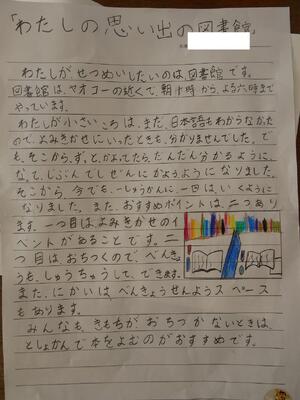 「わたしの思い出の図書館」
わたしがせつめいしたいのは、図書館です。
図書館は、マオコーの近くて、朝十時から、よる六時まで
やっています。
わたしが小さいころは、まだ、日本語もわからなかった
ので、よみきかせにいったときも、分かりませんでした。で
も、そこから、ずっと、かよってたら、だんだん分かるように、
なって、じぶんでしぜんによようになりました。
そこから、今でも、一しゅうかんに、一回は、いくように
なりました。また、おすすめポイントは、二つあり
ます。一つ目は、よみきかせのイ
ベントがあることです。二
つ目は、おちつくので、べんきょ
うも、しゅうちゅうして、できます。
また、にかいは、べんきょうせんようスペース
もあります。
みんなも、きもちが、おちつかないときは、
としょかんで本をよむのがおすすめです。